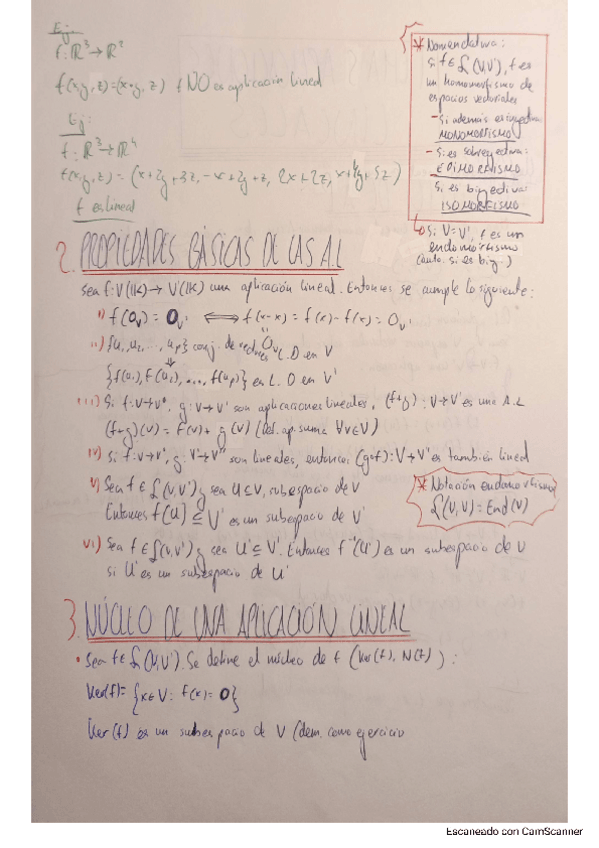 Ej:
f: ℝ³ → ℝ²
f(x,y,z)=(x·y, z) f NO es aplicación lineal
Ej:
f: ℝ³ → ℝ⁴
f(x,y,z) = (x+2y+3z, -x+2y+z, 2x+2z, x+4y+5z)
f es lineal
* Nomenclatura:
Si f∈ℒ(V,V'), f es
un homomorfismo de
espacios vectoriales
- Si además es inyectiva:
MONOMORFISMO
- Si es sobreyectiva:
EPIMORFISMO
Si es biyectiva:
ISOMORFISMO
↳ Si V=V', f es un
endomorfismo
(auto. si es biy.)
2. PROPIEDADES BÁSICAS DE LAS A.L
Sea f:V(𝕂) → V'(𝕂) una aplicación lineal. Entonces se cumple lo siguiente:
i) f(0ᵥ) = 0ᵥ' ⟺ f(x-x) = f(x)-f(x) = 0ᵥ'
"
0ᵥ
ii) {u₁, u₂, ..., uₚ} conj. de vectores L.D en V
⇓
{f(u₁), f(u₂), ..., f(uₚ)} es L.D en V'
iii) Si f:V→V', g:V→V' son aplicaciones lineales, (f+g): V→V' es una A.L
(f+g)(v) = f(v) + g(v) (Def. ap. suma ∀v∈V)
iv) Si f:V→V', g:V'→V'' son lineales, entonces (g∘f):V→V'' es también lineal
v) Sea f∈ℒ(V,V') y sea U⊆V, subespacio de V
Entonces f(U) ⊆ V' es un subespacio de V'
* Notación endomorfismo
ℒ(V,V) = End(V)
vi) Sea f∈ℒ(V,V') y sea U'⊆V'. Entonces f⁻¹(U') es un subespacio de V
si U' es un subespacio de U'
3. NÚCLEO DE UNA APLICACIÓN LINEAL
• Sea f∈ℒ(V,V'). Se define el núcleo de f (Ker(f), N(f)):
Ker(f) = {x∈V: f(x)=0}
Ker(f) es un subespacio de V (dem. como ejercicio
Escaneado con CamScanner